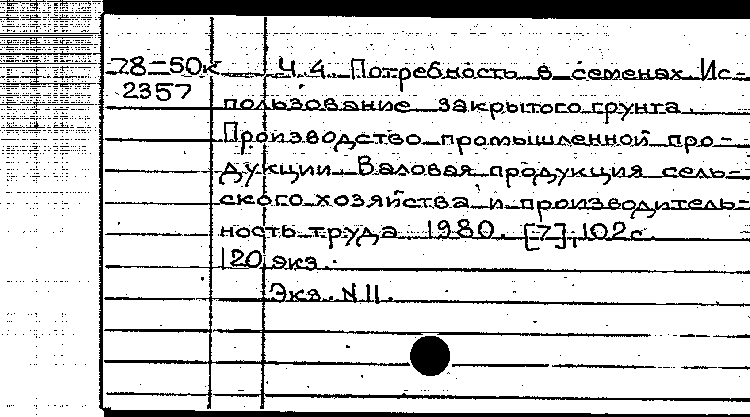 78-50к Ч.4. Потребность в семенах Ис-
2357 пользование закрытого грунта.
Производство промышленной про-
дукции. Валовая продукция сель-
ского хозяйства и производитель-
ность труда 1980. [7], 102с.
120 экз.
Экз. N 11.